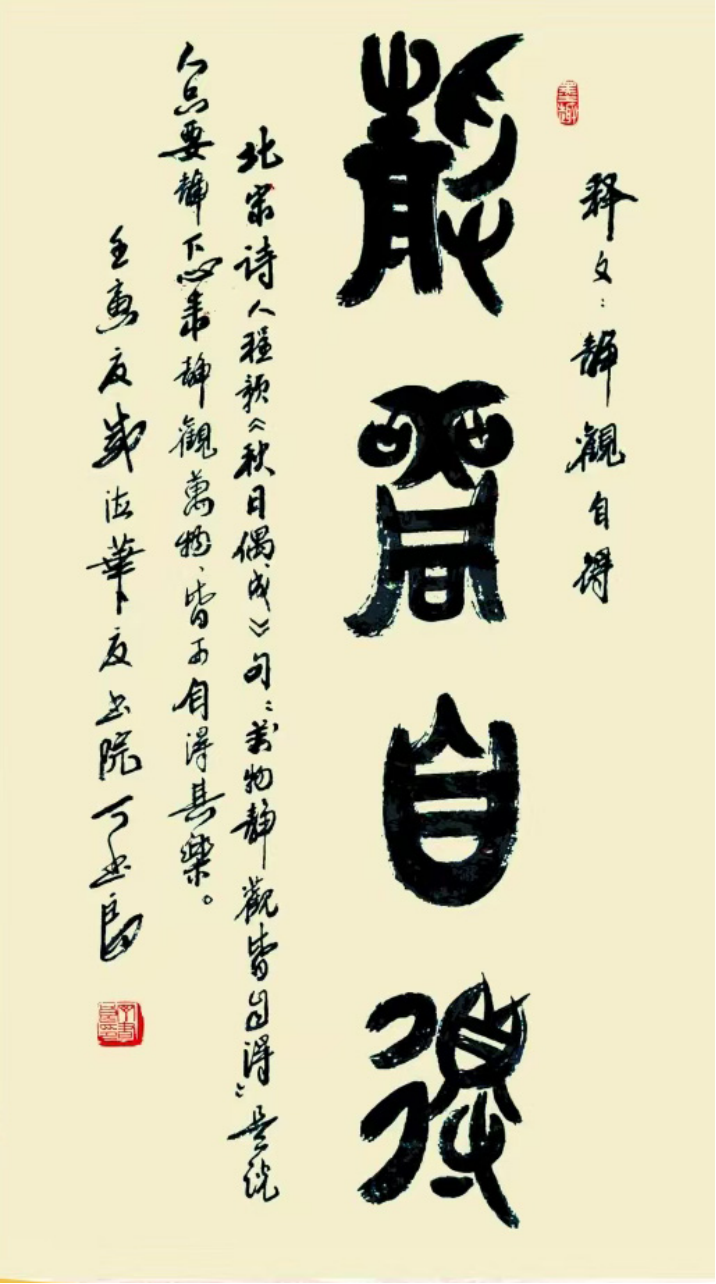 释文：静觀自得
静觀自得
北宋诗人程颢《秋日偶成》句：“萬物静觀皆自得”是说
人只要静下心来静觀萬物，皆可自得其樂。
壬寅夏 華夏书院丁书良